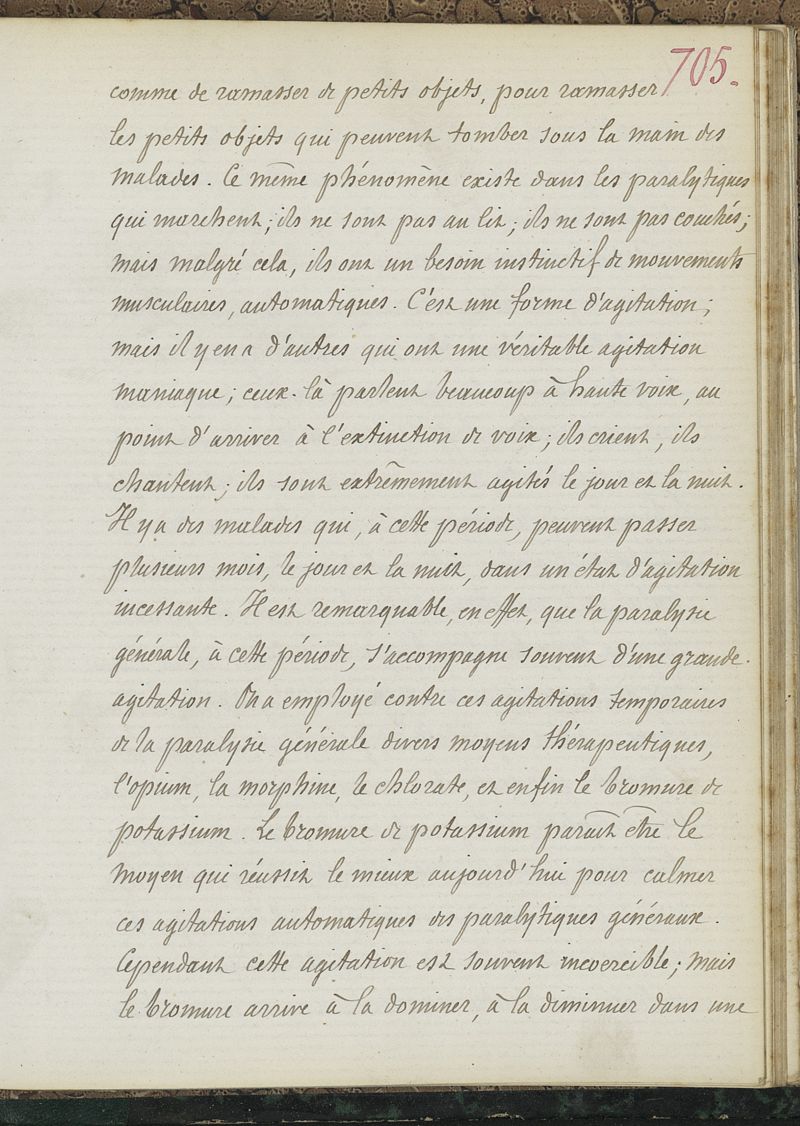 705.
comme de ramasser de petits objets, pour ramasser
les petits objets qui peuvent tomber sous la main des
malades. Ce même phénomène existe dans les paralytiques
qui marchent; ils ne sont pas au lit; ils ne sont pas couchés;
mais malgré cela, ils ont un besoin instinctif de mouvements
musculaires, automatiques. C'est une forme d'agitation;
mais il y en a d'autres qui ont une véritable agitation
maniaque; ceux-là parlent beaucoup à haute voix, au
point d'arriver à l'extinction de voix; ils crient, ils
chantent; ils sont extrêmement agités le jour et la nuit.
Il y a des malades qui, à cette période, peuvent passer
plusieurs mois, le jour et la nuit, dans un état d'agitation
incessante. Il est remarquable, en effet, que la paralysie
générale, à cette période, s'accompagne souvent d'une grande
agitation. On a employé contre ces agitations temporaires
de la paralysie générale divers moyens thérapeutiques,
l'opium, la morphine, le chlorate, et enfin le bromure de
potassium. Le bromure de potassium paraît être le
moyen qui réussit le mieux aujourd'hui pour calmer
ces agitations automatiques des paralytiques généraux.
Cependant cette agitation est souvent incoercible; mais
le bromure arrive à la dominer, à la diminuer dans une